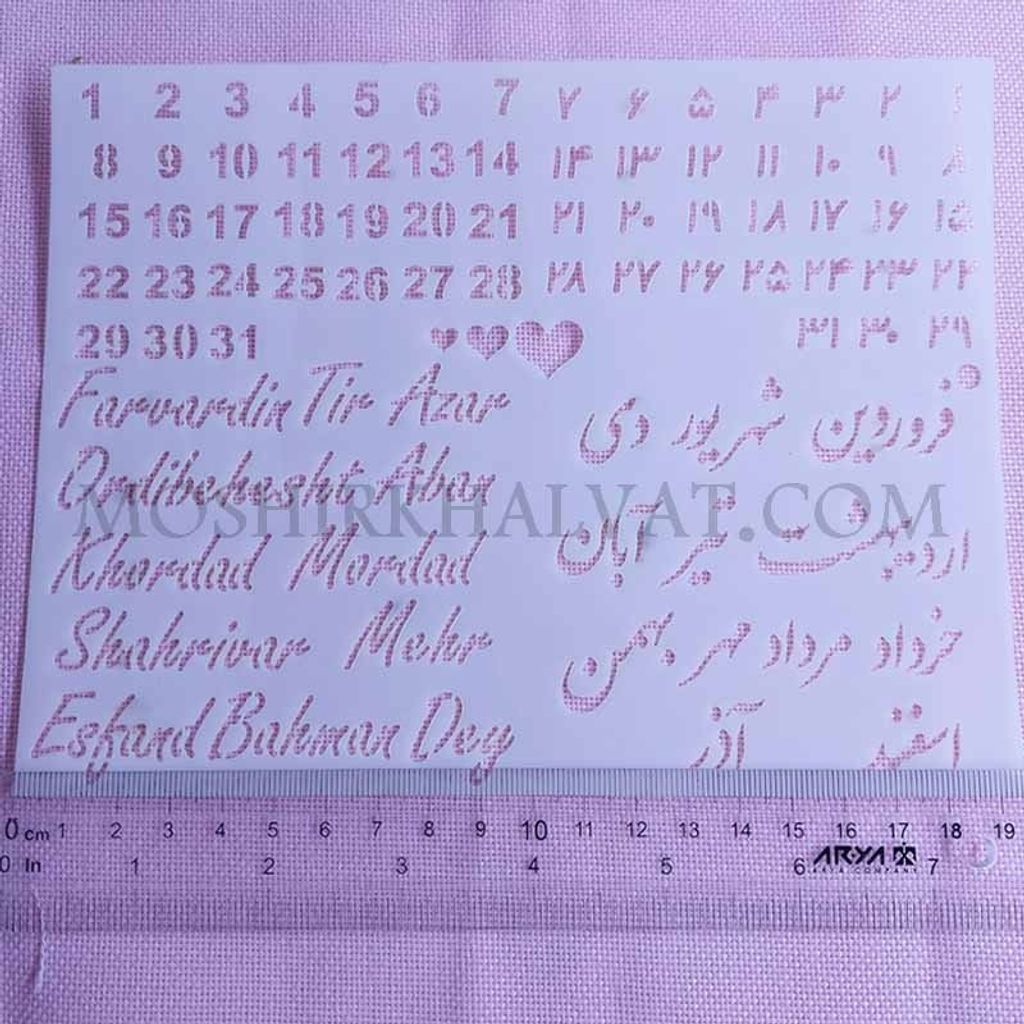 1 2 3 4 5 6 7
8 9 10 11 12 13 14
15 16 17 18 19 20 21
22 23 24 25 26 27 28
29 30 31
۱ ۲ ۳ ۴ ۵ ۶ ۷
۸ ۹ ۱۰ ۱۱ ۱۲ ۱۳ ۱۴
۱۵ ۱۶ ۱۷ ۱۸ ۱۹ ۲۰ ۲۱
۲۲ ۲۳ ۲۴ ۲۵ ۲۶ ۲۷ ۲۸
۲۹ ۳۰ ۳۱
Farvardin Tir Azar
Ordibehesht Aban
Khordad Mordad
Shahrivar Mehr
Esfand Bahman Dey
فروردین شهریور دی
اردیبهشت تیر آبان
خرداد مرداد مهر بهمن
اسفند آذر
MOSHIRKHALVAT.COM
0 cm 1 2 3 4 5 6 7 8 9 10 11 12 13 14 15 16 17 18 19
0 In 1 2 3 4 5 6 7
ARYA
ARYA COMPANY